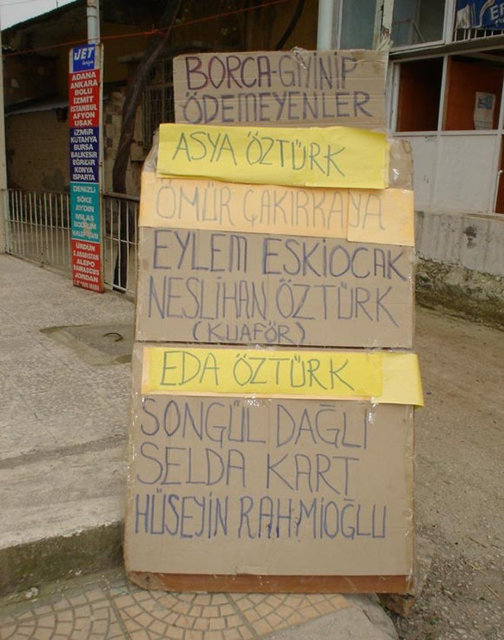 BORCA-GİYİNİP
ÖDEMEYENLER
ASYA ÖZTÜRK
ÖMÜR ÇAKIRKAYA
EYLEM ESKİOCAK
NESLİHAN ÖZTÜRK
(KUAFÖR)
EDA ÖZTÜRK
SONGÜL DAĞLI
SELDA KART
HÜSEYİN RAHMİOĞLU
JET
ADANA
ANKARA
BOLU
İZMİT
İSTANBUL
AFYON
UŞAK
İZMİR
KUTAHYA
BURSA
BALIKESİR
EĞİRDİR
KONYA
ISPARTA
DENİZLİ
SÖKE
AYDIN
MİLAS
BODRUM
ALEPO
DAMASCUS
JORDAN